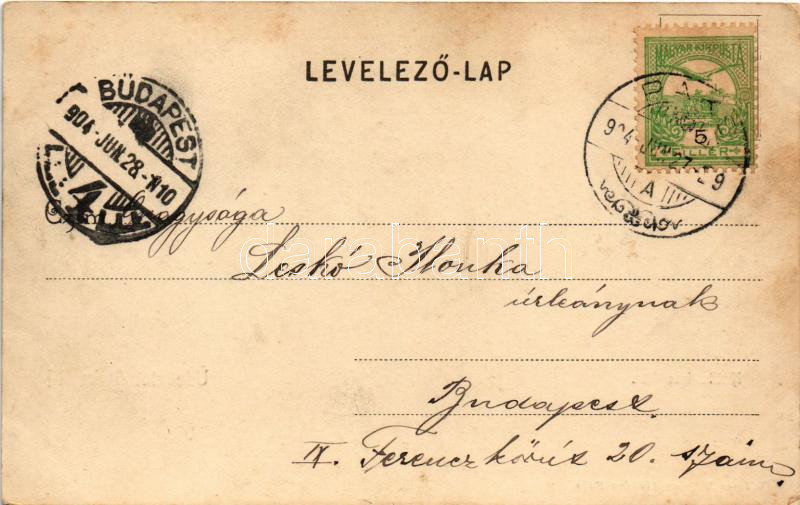 LEVELEZŐ-LAP
MAGYAR KIR. POSTA
5
FILLÉR
BUDAPEST
904 JUN. 28.-N10
4
904 27
A
Nagysága
Leskó Ilonka
úrleánynak
Budapest
IX. Ferenczkörút 20. szám.
darabanth